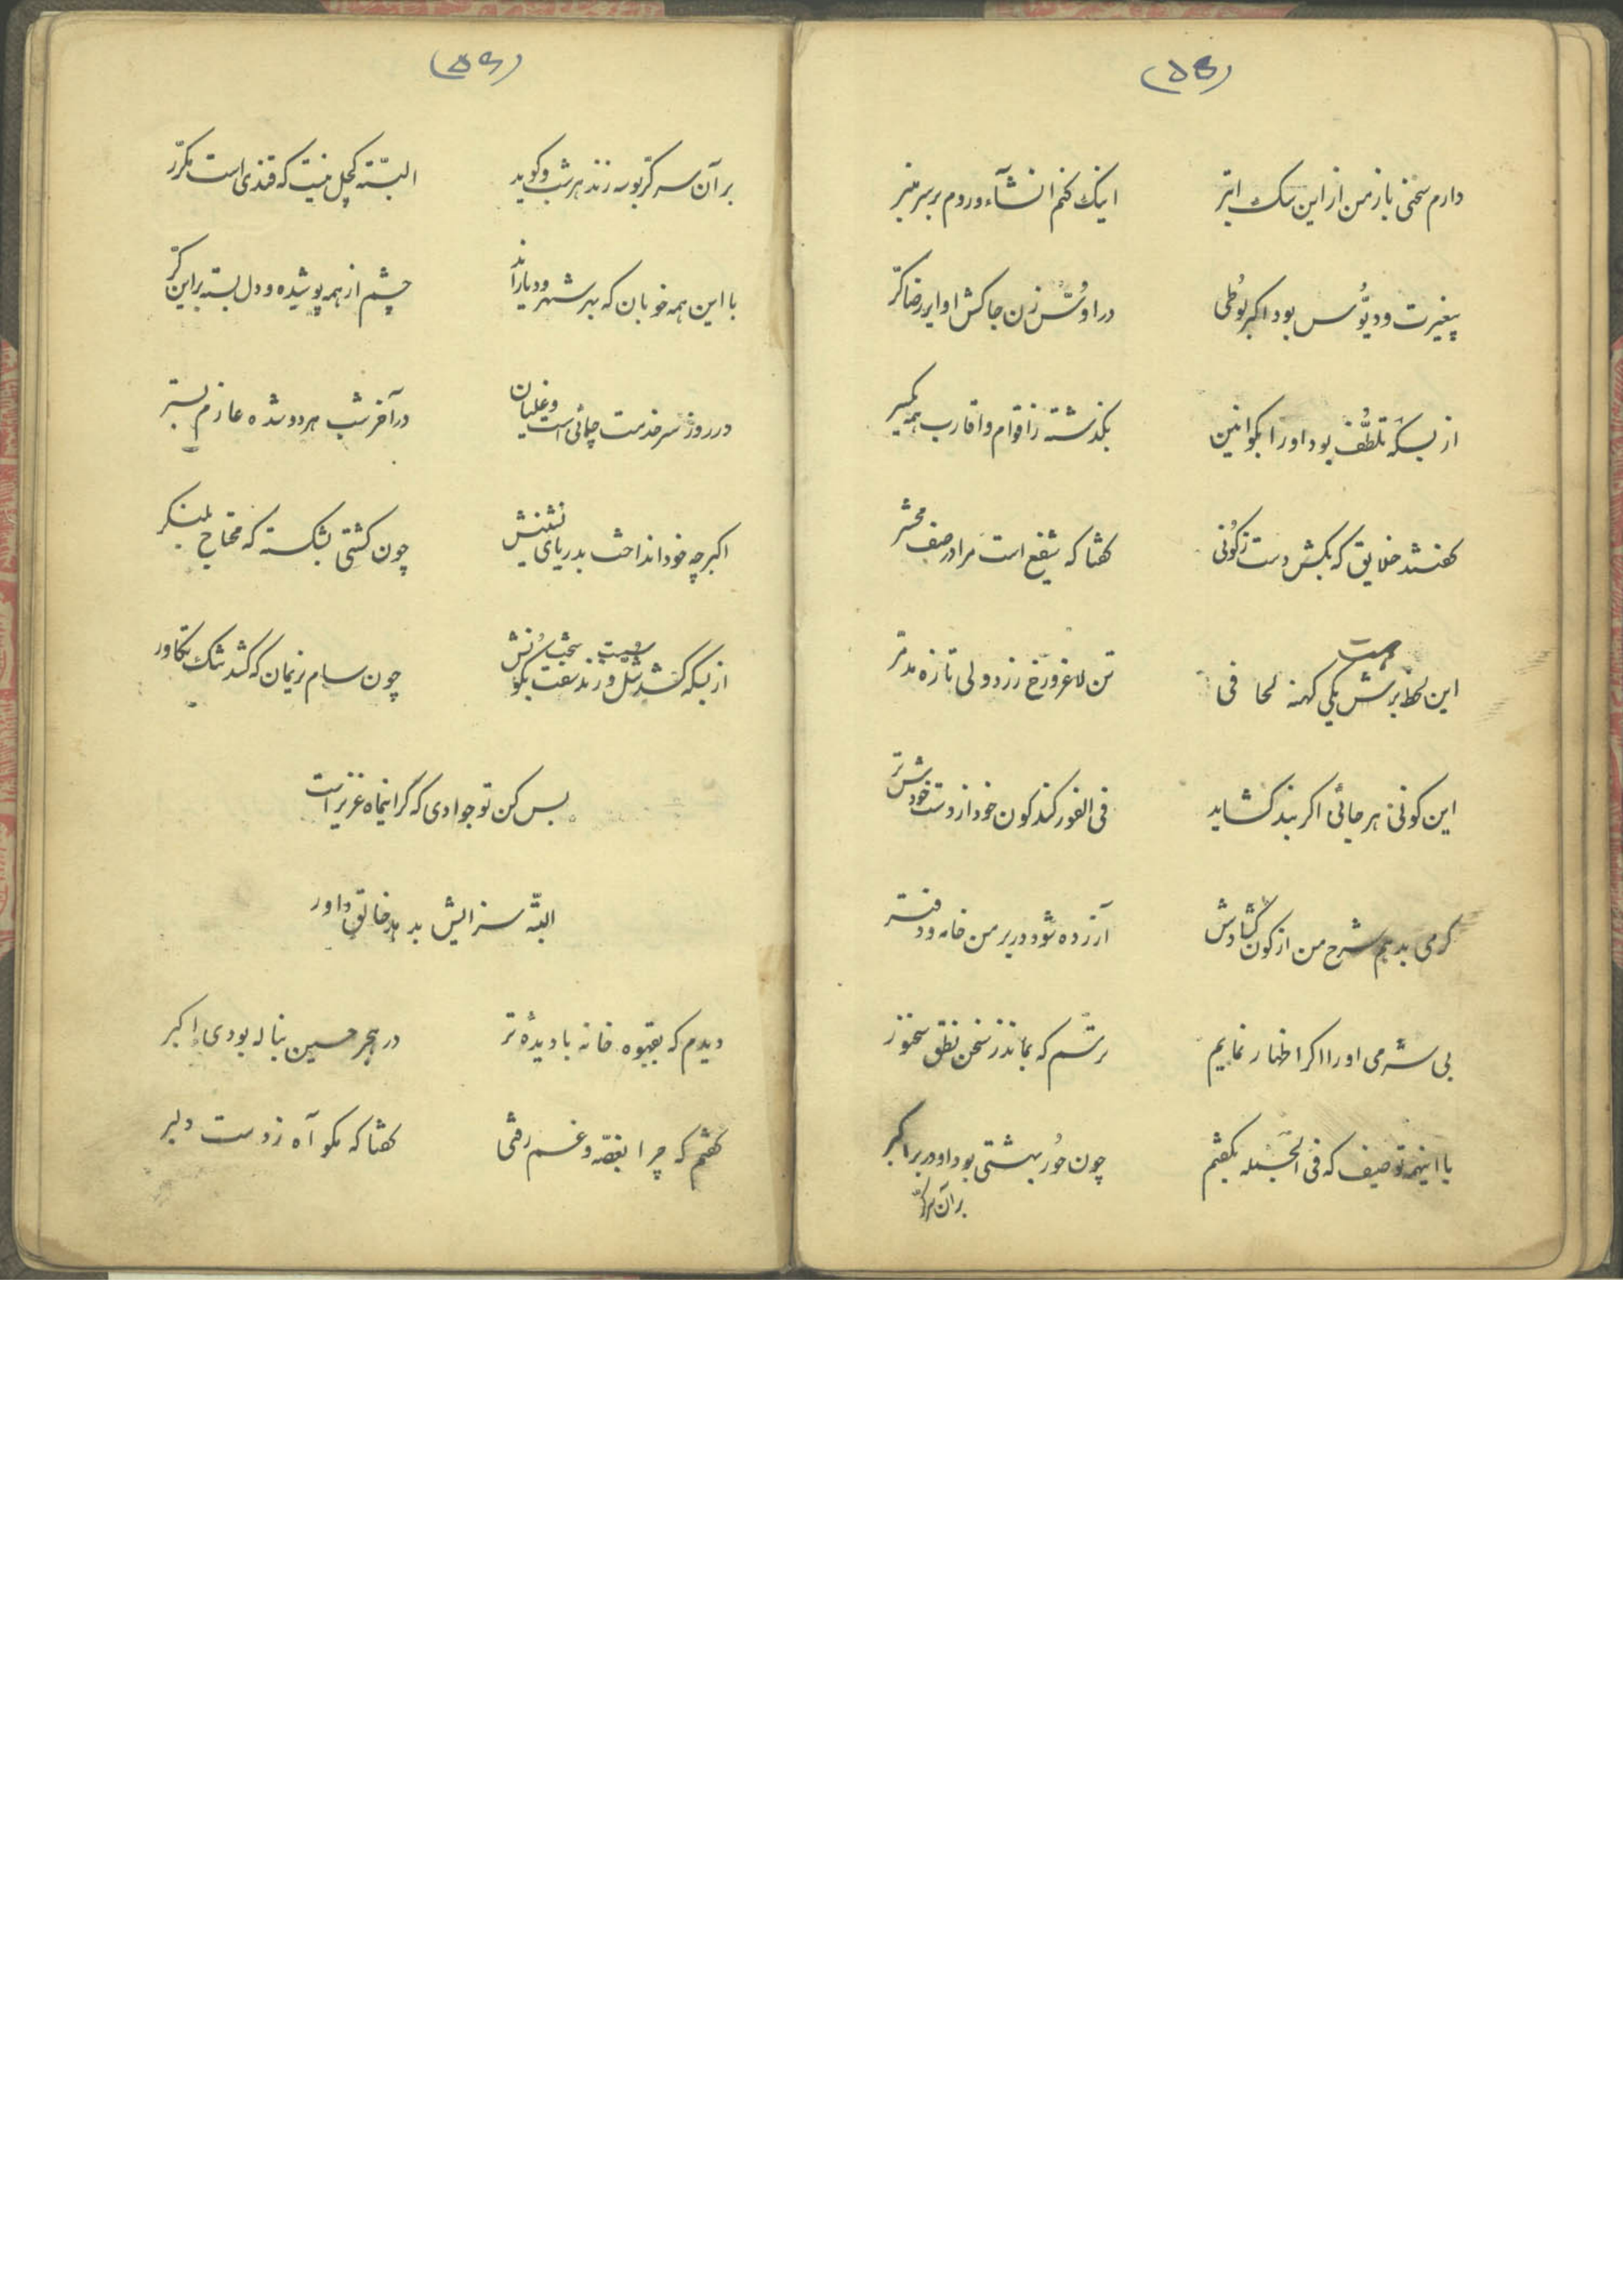 (۵۵)
دارم سخنی باز من از این سگ ابتر اینک کنم انشآء و روم بر سر منبر
بیغیرت و دیّوس بود اکبر لوطی
از بسکه تلطّف بود او را بکو این بگذشته ز اقوام و اقارب همه یکسر
گفتند خلایق که بکش دست ز کونی گفتا که شفیع است مرا در صف محشر
این لطّ برش هست یکی کهنه لحافی تن لاغر و رخ زرد ولی تازه مدمّر
این کونی هر جائی اگر بند گشاید فی الفور کند کون خود از دست خودش تر
گر می بدهم شرح من از کون گشادش آزرده شود در بر من خامه و دفتر
بی شرمی او را اگر اظهار نمایم ترسم که بماند ز سخن نطق سخنور
با اینهمه توصیف که فی الجمله بگفتم چون حور بهشتی بود او در بر اکبر
بر آن سر کرّ
(۵۶)
بر آن سر کرّ بوسه زند هر شب و گوید البتّه کچل نیست که قندی است مکرّر
با این همه خوبان که بهر شهر و دیارند چشم از همه پوشیده و دل بسته بر این کرّ
در روز سر خدمت چائی است و غلیان در آخر شب هر دو شده عازم بستر
اکبر چه خود انداخت بدریای چون کشتی بشکسته که محتاج بلنگر
از بسکه کشد چون سام نریمان که کشد تنگ تکاور
بس کن تو جوادی که گر اینماه عزیز است
البتّه سزایش بدهد خالق داور
دیدم که بقهوه خانه با دیدهٔ تر در هجر حسین بناله بودی اکبر
گفتم که چرا بغصّه و غم رفتی گفتا که مگو آه ز دست دلبر